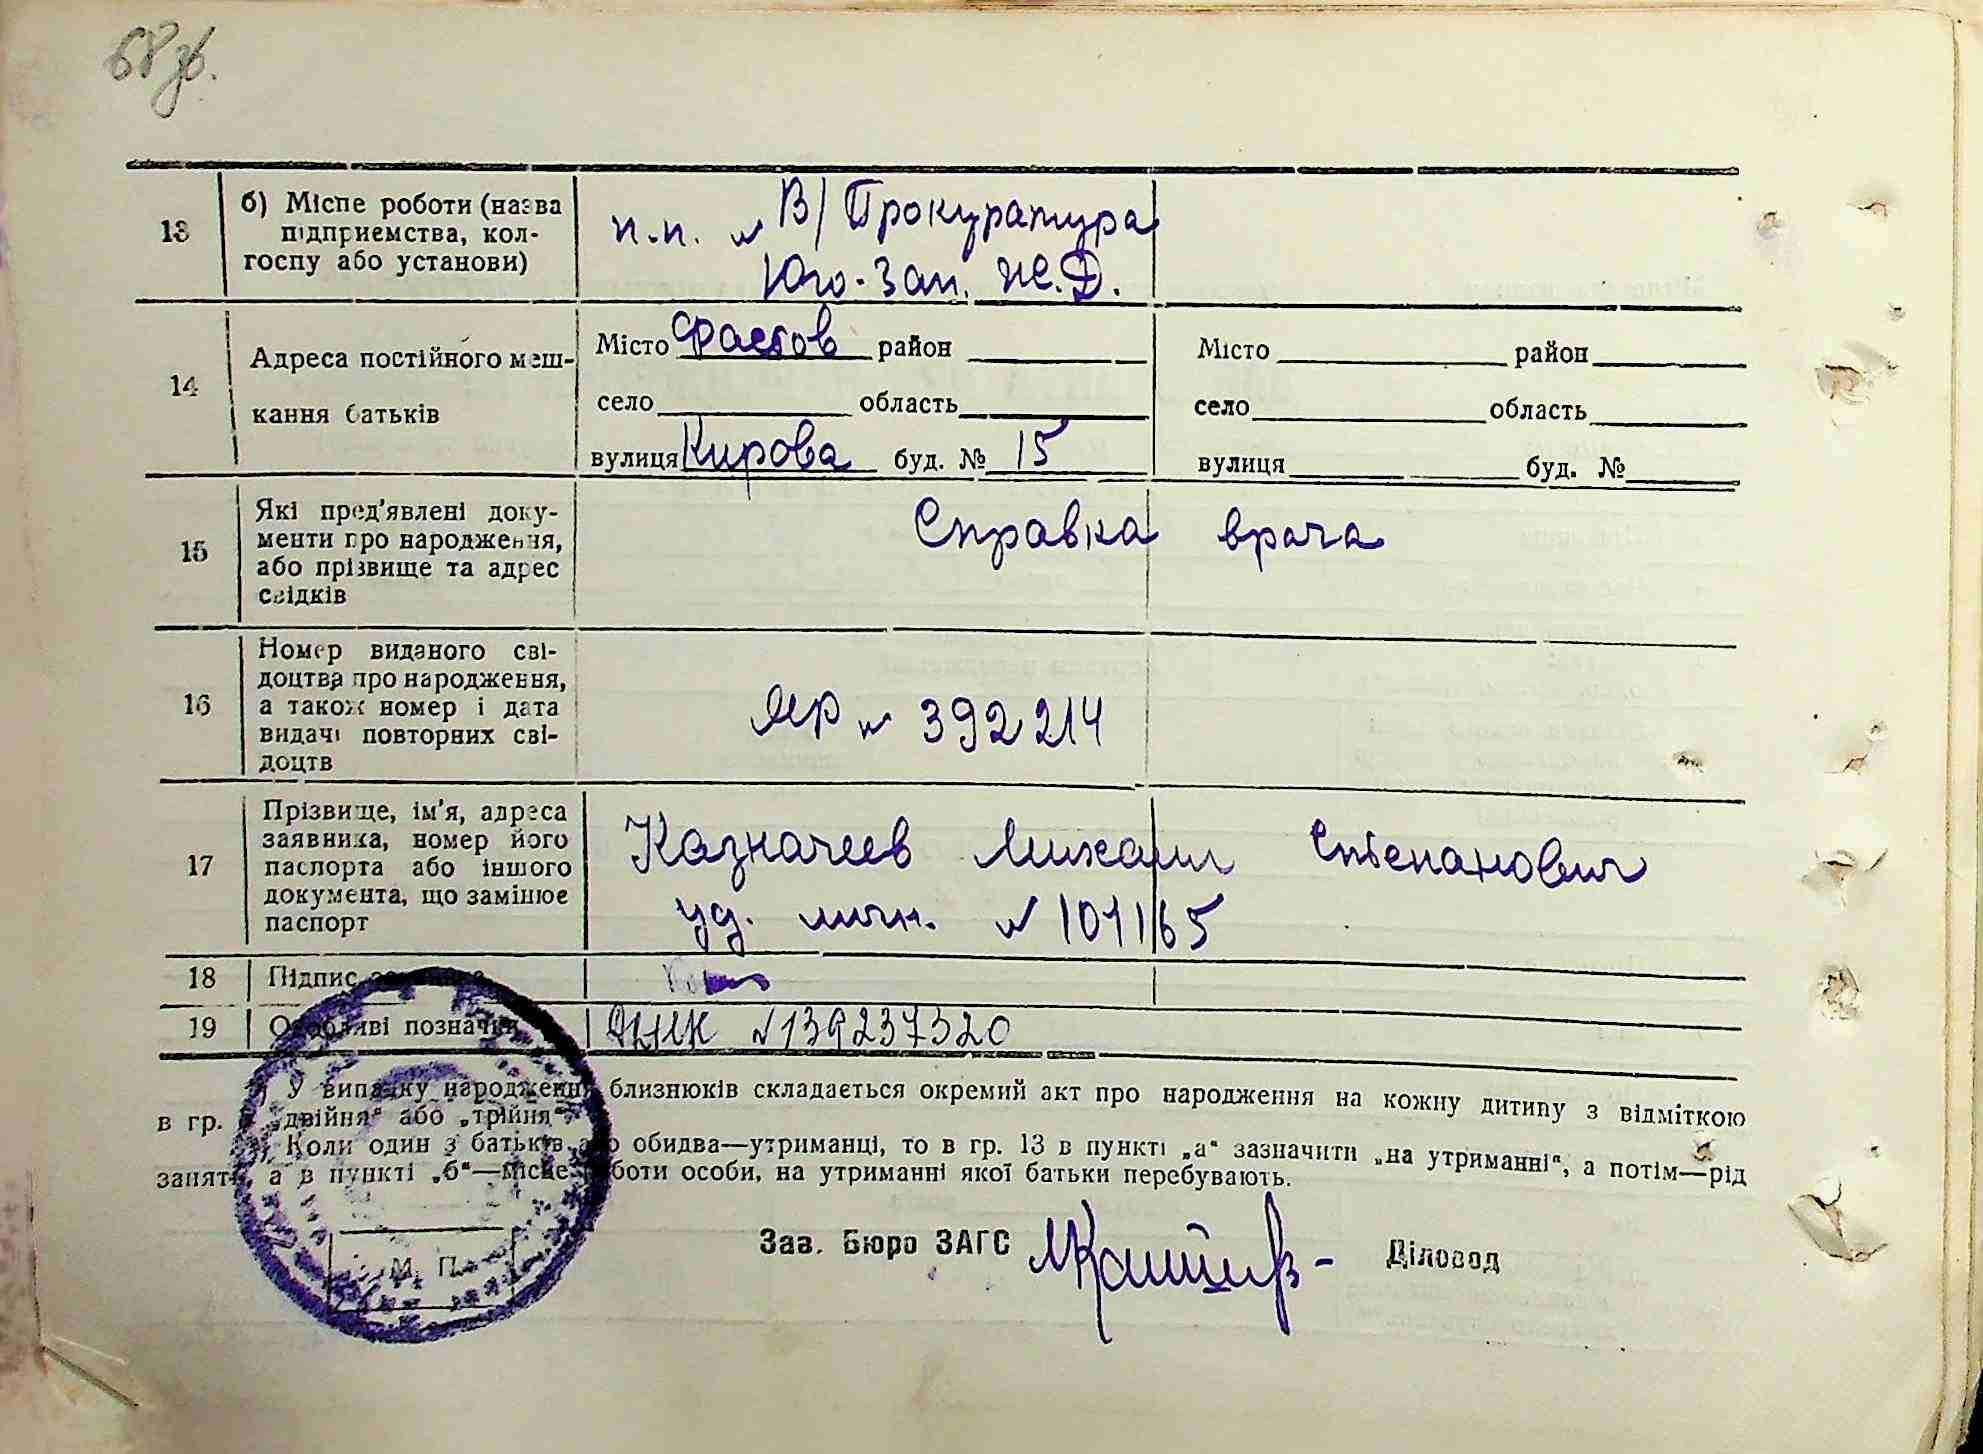 68 зв.
13
б) Місце роботи (назва
підприємства, кол-
госпу або установи)
п.п. № В/Прокуратура
Юго-Зап. Ж.Д.
14
Адреса постійного меш-
кання батьків
Місто Фастов район
село область
вулиця Кирова буд. № 15
Місто район
село область
вулиця буд. №
15
Які пред'явлені доку-
менти про народження,
або прізвище та адрес
свідків
Справка врача
16
Номер виданого сві-
доцтва про народження,
а також номер і дата
видачі повторних сві-
доцтв
№ 392214
17
Прізвище, ім'я, адреса
заявника, номер його
паспорта або іншого
документа, що замінює
паспорт
Казначеев Михаил Степанович
уд. личн. № 101165
18
Підпис
19
Особливі позначки
№ 139237320
У випадку народження близнюків складається окремий акт про народження на кожну дитину з відміткою
в гр. „двійня“ або „трійня“.
Коли один з батьків або обидва—утриманці, то в гр. 13 в пункті „а“ зазначити „на утриманні“, а потім—рід
занять, а в пункті „б“—місце роботи особи, на утриманні якої батьки перебувають.
М. П.
Зав. Бюро ЗАГС
Діловод